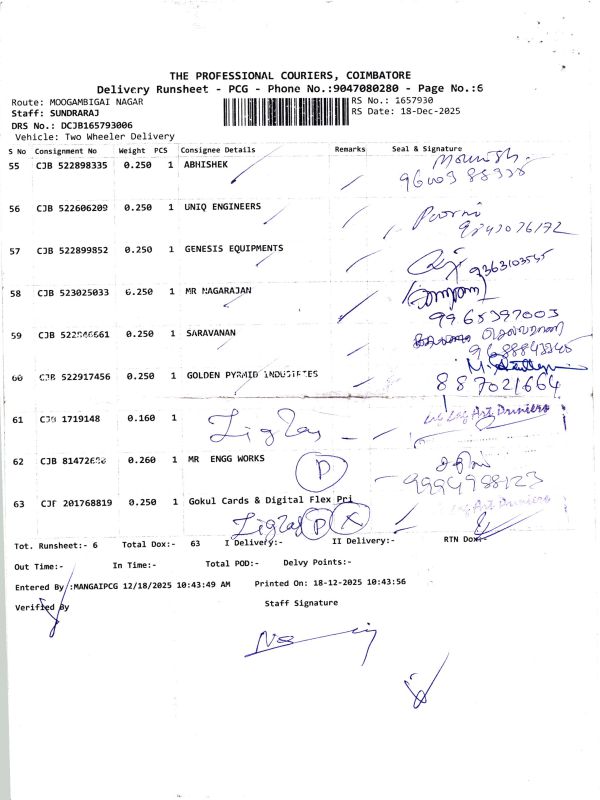 THE PROFESSIONAL COURIERS, COIMBATORE
Delivery Runsheet - PCG - Phone No.:9047080280 - Page No.:6
Route: MOOGAMBIGAI NAGAR
RS No.: 1657930
Staff: SUNDRARAJ
RS Date: 18-Dec-2025
DRS No.: DCJB165793006
Vehicle: Two Wheeler Delivery
S No Consignment No Weight PCS Consignee Details Remarks Seal & Signature
55 CJB 522898335 0.250 1 ABHISHEK
56 CJB 522606209 0.250 1 UNIQ ENGINEERS
57 CJB 522899852 0.250 1 GENESIS EQUIPMENTS
9363103535
58 CJB 523025033 0.250 1 MR NAGARAJAN
9965397003
59 CJB 0.250 1 SARAVANAN
60 CJB 522917456 0.250 1 GOLDEN PYRMID INDUSTRIES
887021664
61 1719148 0.160 1 Zig Zag
Zig Zag Art Printers
62 CJB 0.260 1 MR ENGG WORKS P
9994988123
63 201768819 0.250 1 Gokul Cards & Digital Flex Pri
Zigzag P X
Zig Zag Art Printers
Tot. Runsheet:- 6 Total Dox:- 63 I Delivery:- II Delivery:- RTN Dox:-
Out Time:- In Time:- Total POD:- Delvy Points:-
Entered By :MANGAIPCG 12/18/2025 10:43:49 AM Printed On: 18-12-2025 10:43:56
Verified By Staff Signature